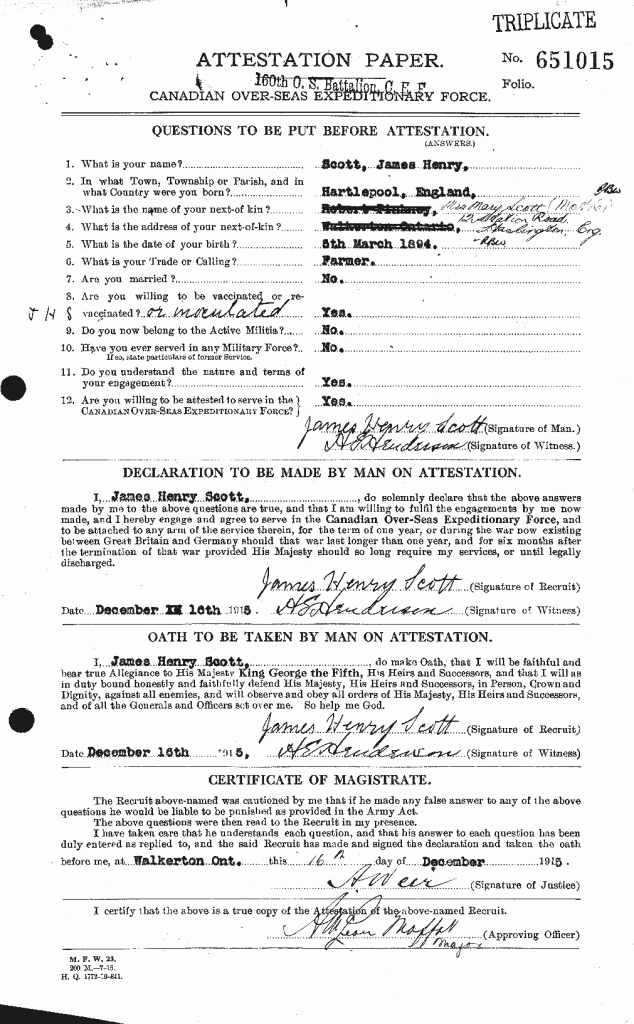 TRIPLICATE
ATTESTATION PAPER.
No. 651015
160th O. S. Battalion, C. E. F.
Folio.
CANADIAN OVER-SEAS EXPEDITIONARY FORCE.
QUESTIONS TO BE PUT BEFORE ATTESTATION.
(ANSWERS.)
1. What is your name? Scott, James Henry,
2. In what Town, Township or Parish, and in
what Country were you born? Hartlepool, England,
3. What is the name of your next-of kin? Mrs Mary Scott (Mother)
4. What is the address of your next-of-kin? Walkerton Ontario, 12 Station Road
Eng.
5. What is the date of your birth? 5th March 1894.
6. What is your Trade or Calling? Farmer.
7. Are you married? No.
8. Are you willing to be vaccinated or re-
J H S vaccinated? or inoculated Yes.
9. Do you now belong to the Active Militia? No.
10. Have you ever served in any Military Force? No.
If so, state particulars of former Service.
11. Do you understand the nature and terms of
your engagement? Yes.
12. Are you willing to be attested to serve in the
CANADIAN OVER-SEAS EXPEDITIONARY FORCE? Yes.
James Henry Scott (Signature of Man.)
A E Henderson (Signature of Witness.)
DECLARATION TO BE MADE BY MAN ON ATTESTATION.
I, James Henry Scott, do solemnly declare that the above answers
made by me to the above questions are true, and that I am willing to fulfil the engagements by me now
made, and I hereby engage and agree to serve in the Canadian Over-Seas Expeditionary Force, and
to be attached to any arm of the service therein, for the term of one year, or during the war now existing
between Great Britain and Germany should that war last longer than one year, and for six months after
the termination of that war provided His Majesty should so long require my services, or until legally
discharged.
James Henry Scott (Signature of Recruit)
Date December 16th 1915. A E Henderson (Signature of Witness)
OATH TO BE TAKEN BY MAN ON ATTESTATION.
I, James Henry Scott, do make Oath, that I will be faithful and
bear true Allegiance to His Majesty King George the Fifth, His Heirs and Successors, and that I will as
in duty bound honestly and faithfully defend His Majesty, His Heirs and Successors, in Person, Crown and
Dignity, against all enemies, and will observe and obey all orders of His Majesty, His Heirs and Successors,
and of all the Generals and Officers set over me. So help me God.
James Henry Scott (Signature of Recruit)
Date December 16th 1915, A E Henderson (Signature of Witness)
CERTIFICATE OF MAGISTRATE.
The Recruit above-named was cautioned by me that if he made any false answer to any of the above
questions he would be liable to be punished as provided in the Army Act.
The above questions were then read to the Recruit in my presence.
I have taken care that he understands each question, and that his answer to each question has been
duly entered as replied to, and the said Recruit has made and signed the declaration and taken the oath
before me, at Walkerton Ont. this 16th day of December 1915.
A Weir (Signature of Justice)
I certify that the above is a true copy of the Attestation of the above-named Recruit.
Moffat (Approving Officer)
Major
M. F. W. 23.
200 M.—7-15.
H. Q. 1772-39-841.